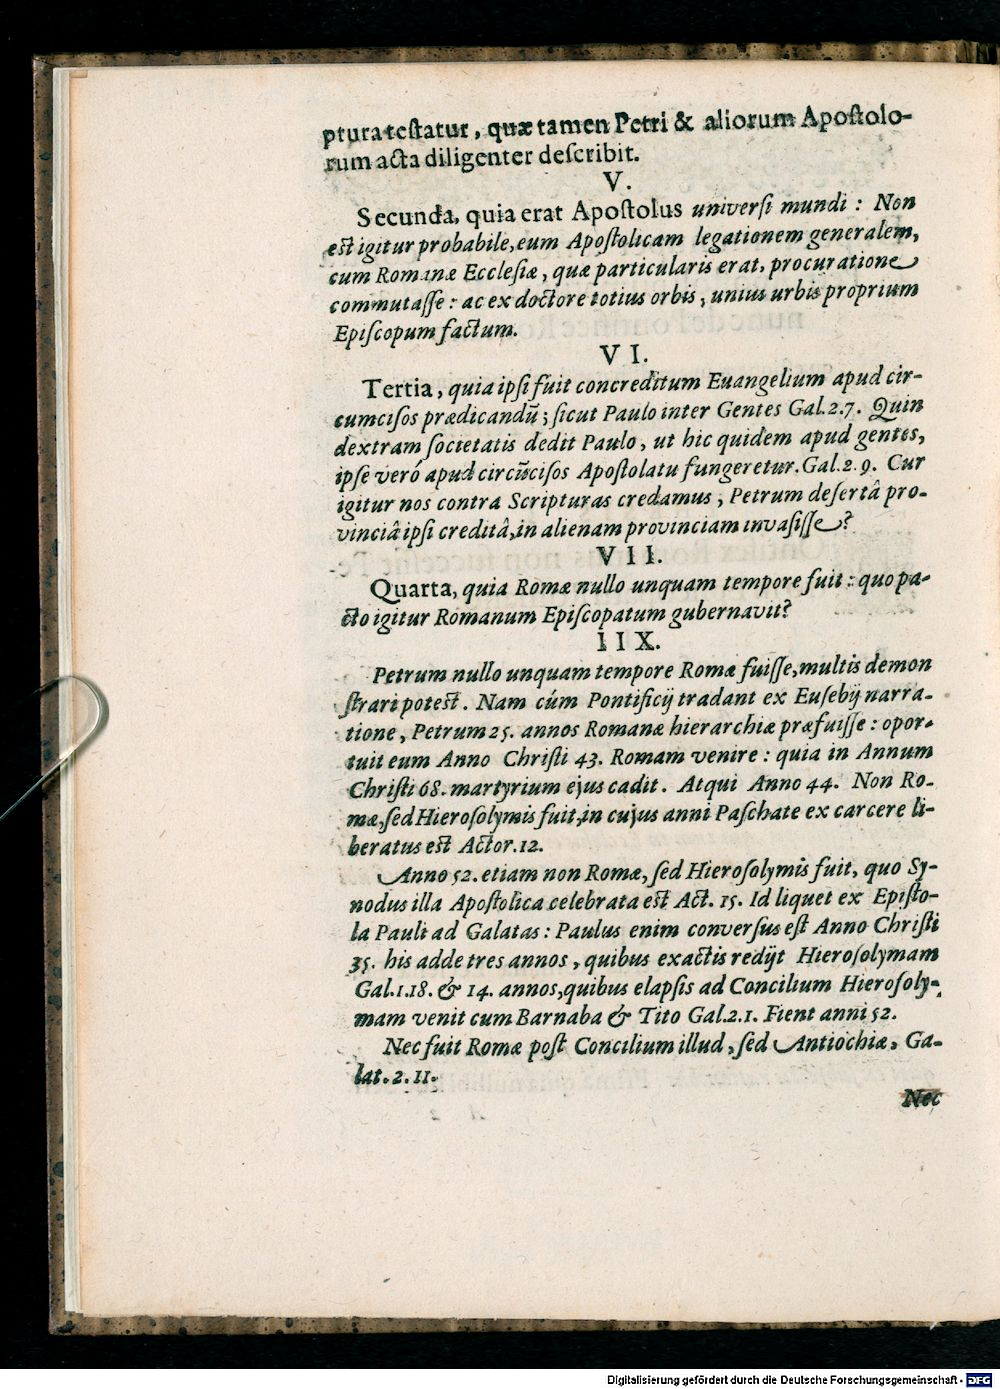 ptura testatur, quæ tamen Petri & aliorum Apostolo-
rum acta diligenter describit.
V.
Secunda, quia erat Apostolus universi mundi: Non
est igitur probabile, eum Apostolicam legationem generalem,
cum Romanæ Ecclesiæ, quæ particularis erat, procuratione
commutasse: ac ex doctore totius orbis, unius urbis proprium
Episcopum factum.
VI.
Tertia, quia ipsi fuit concreditum Euangelium apud cir-
cumcisos prædicandū; sicut Paulo inter Gentes Gal. 2. 7. Quin
dextram societatis dedit Paulo, ut hic quidem apud gentes,
ipse veró apud circūcisos Apostolatu fungeretur. Gal. 2. 9. Cur
igitur nos contra Scripturas credamus, Petrum desertâ pro-
vinciâ ipsi creditâ, in alienam provinciam invasisse?
VII.
Quarta, quia Romæ nullo unquam tempore fuit: quo pa-
cto igitur Romanum Episcopatum gubernavit?
IIX.
Petrum nullo unquam tempore Romæ fuisse, multis demon
strari potest. Nam cúm Pontificij tradant ex Eusebij narra-
tione, Petrum 25. annos Romanæ hierarchiæ præfuisse: opor-
tuit eum Anno Christi 43. Romam venire: quia in Annum
Christi 68. martyrium ejus cadit. Atqui Anno 44. Non Ro-
mæ, sed Hierosolymis fuit, in cujus anni Paschate ex carcere li-
beratus est Actor. 12.
Anno 52. etiam non Romæ, sed Hierosolymis fuit, quo Sy-
nodus illa Apostolica celebrata est Act. 15. Id liquet ex Episto-
la Pauli ad Galatas: Paulus enim conversus est Anno Christi
35. his adde tres annos, quibus exactis redijt Hierosolymam
Gal. 1. 18. & 14. annos, quibus elapsis ad Concilium Hierosoly-
mam venit cum Barnaba & Tito Gal. 2. 1. Fient anni 52.
Nec fuit Romæ post Concilium illud, sed Antiochiæ, Ga-
lat. 2. 11.
Nec
Digitalisierung gefördert durch die Deutsche Forschungsgemeinschaft - DFG